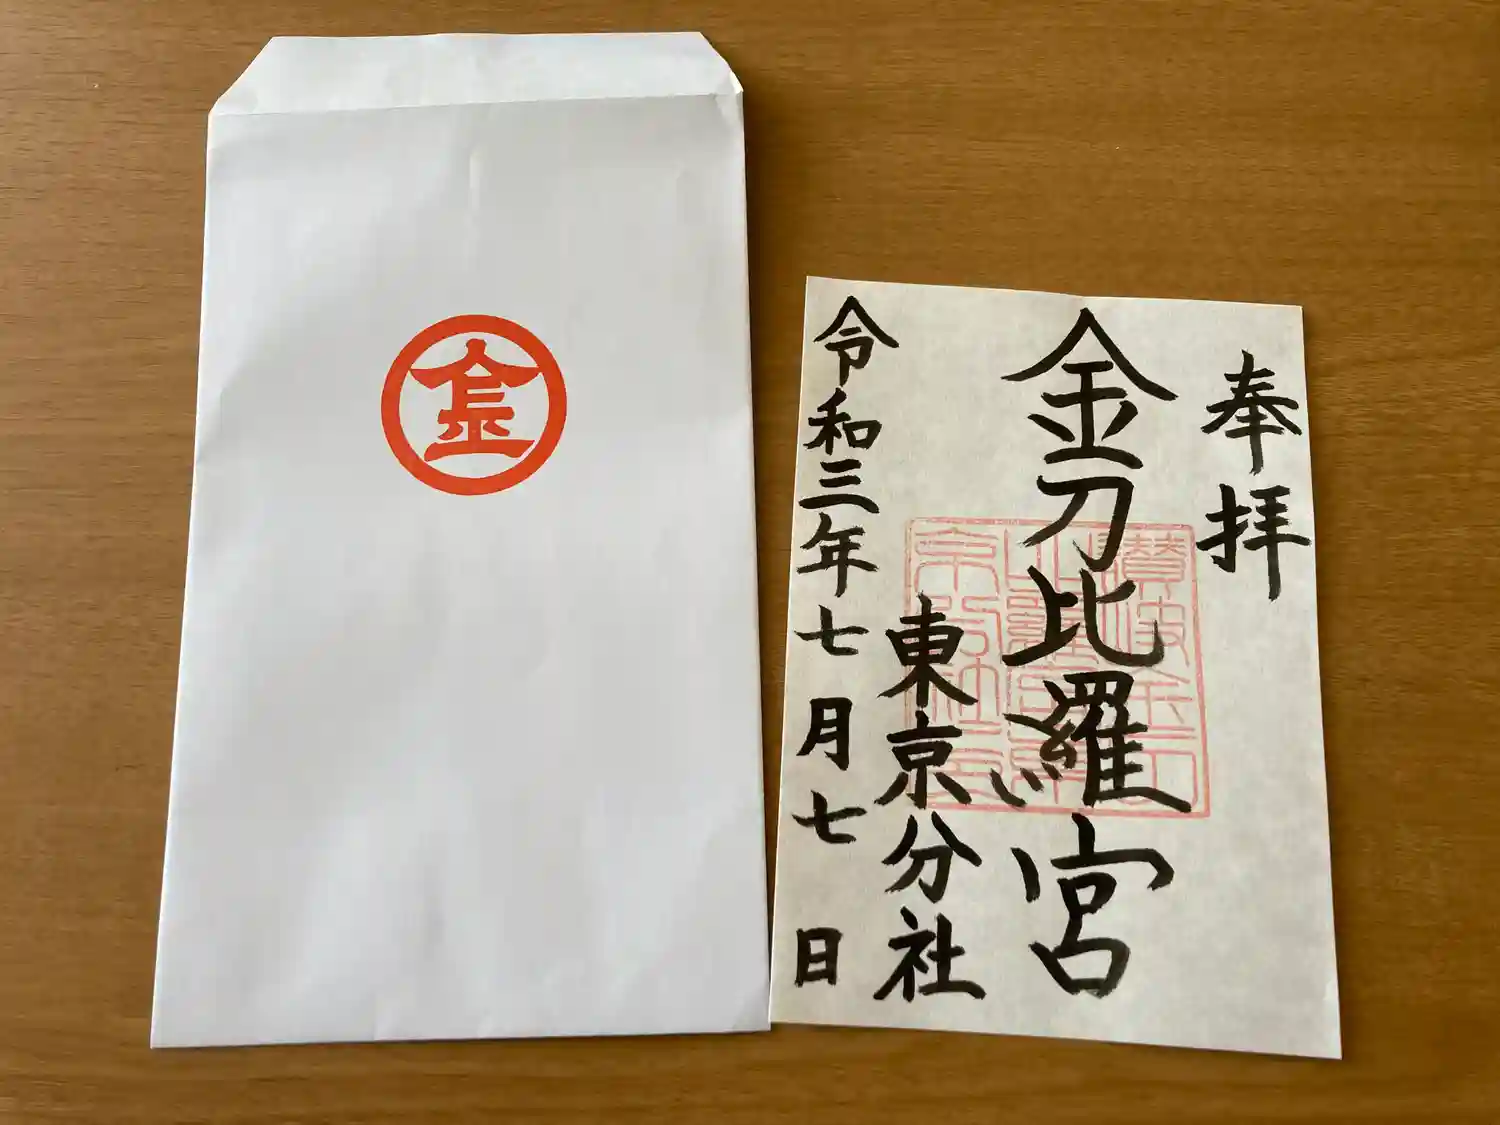 金
奉拝
金刀比羅宮
東京分社
令和三年七月七日